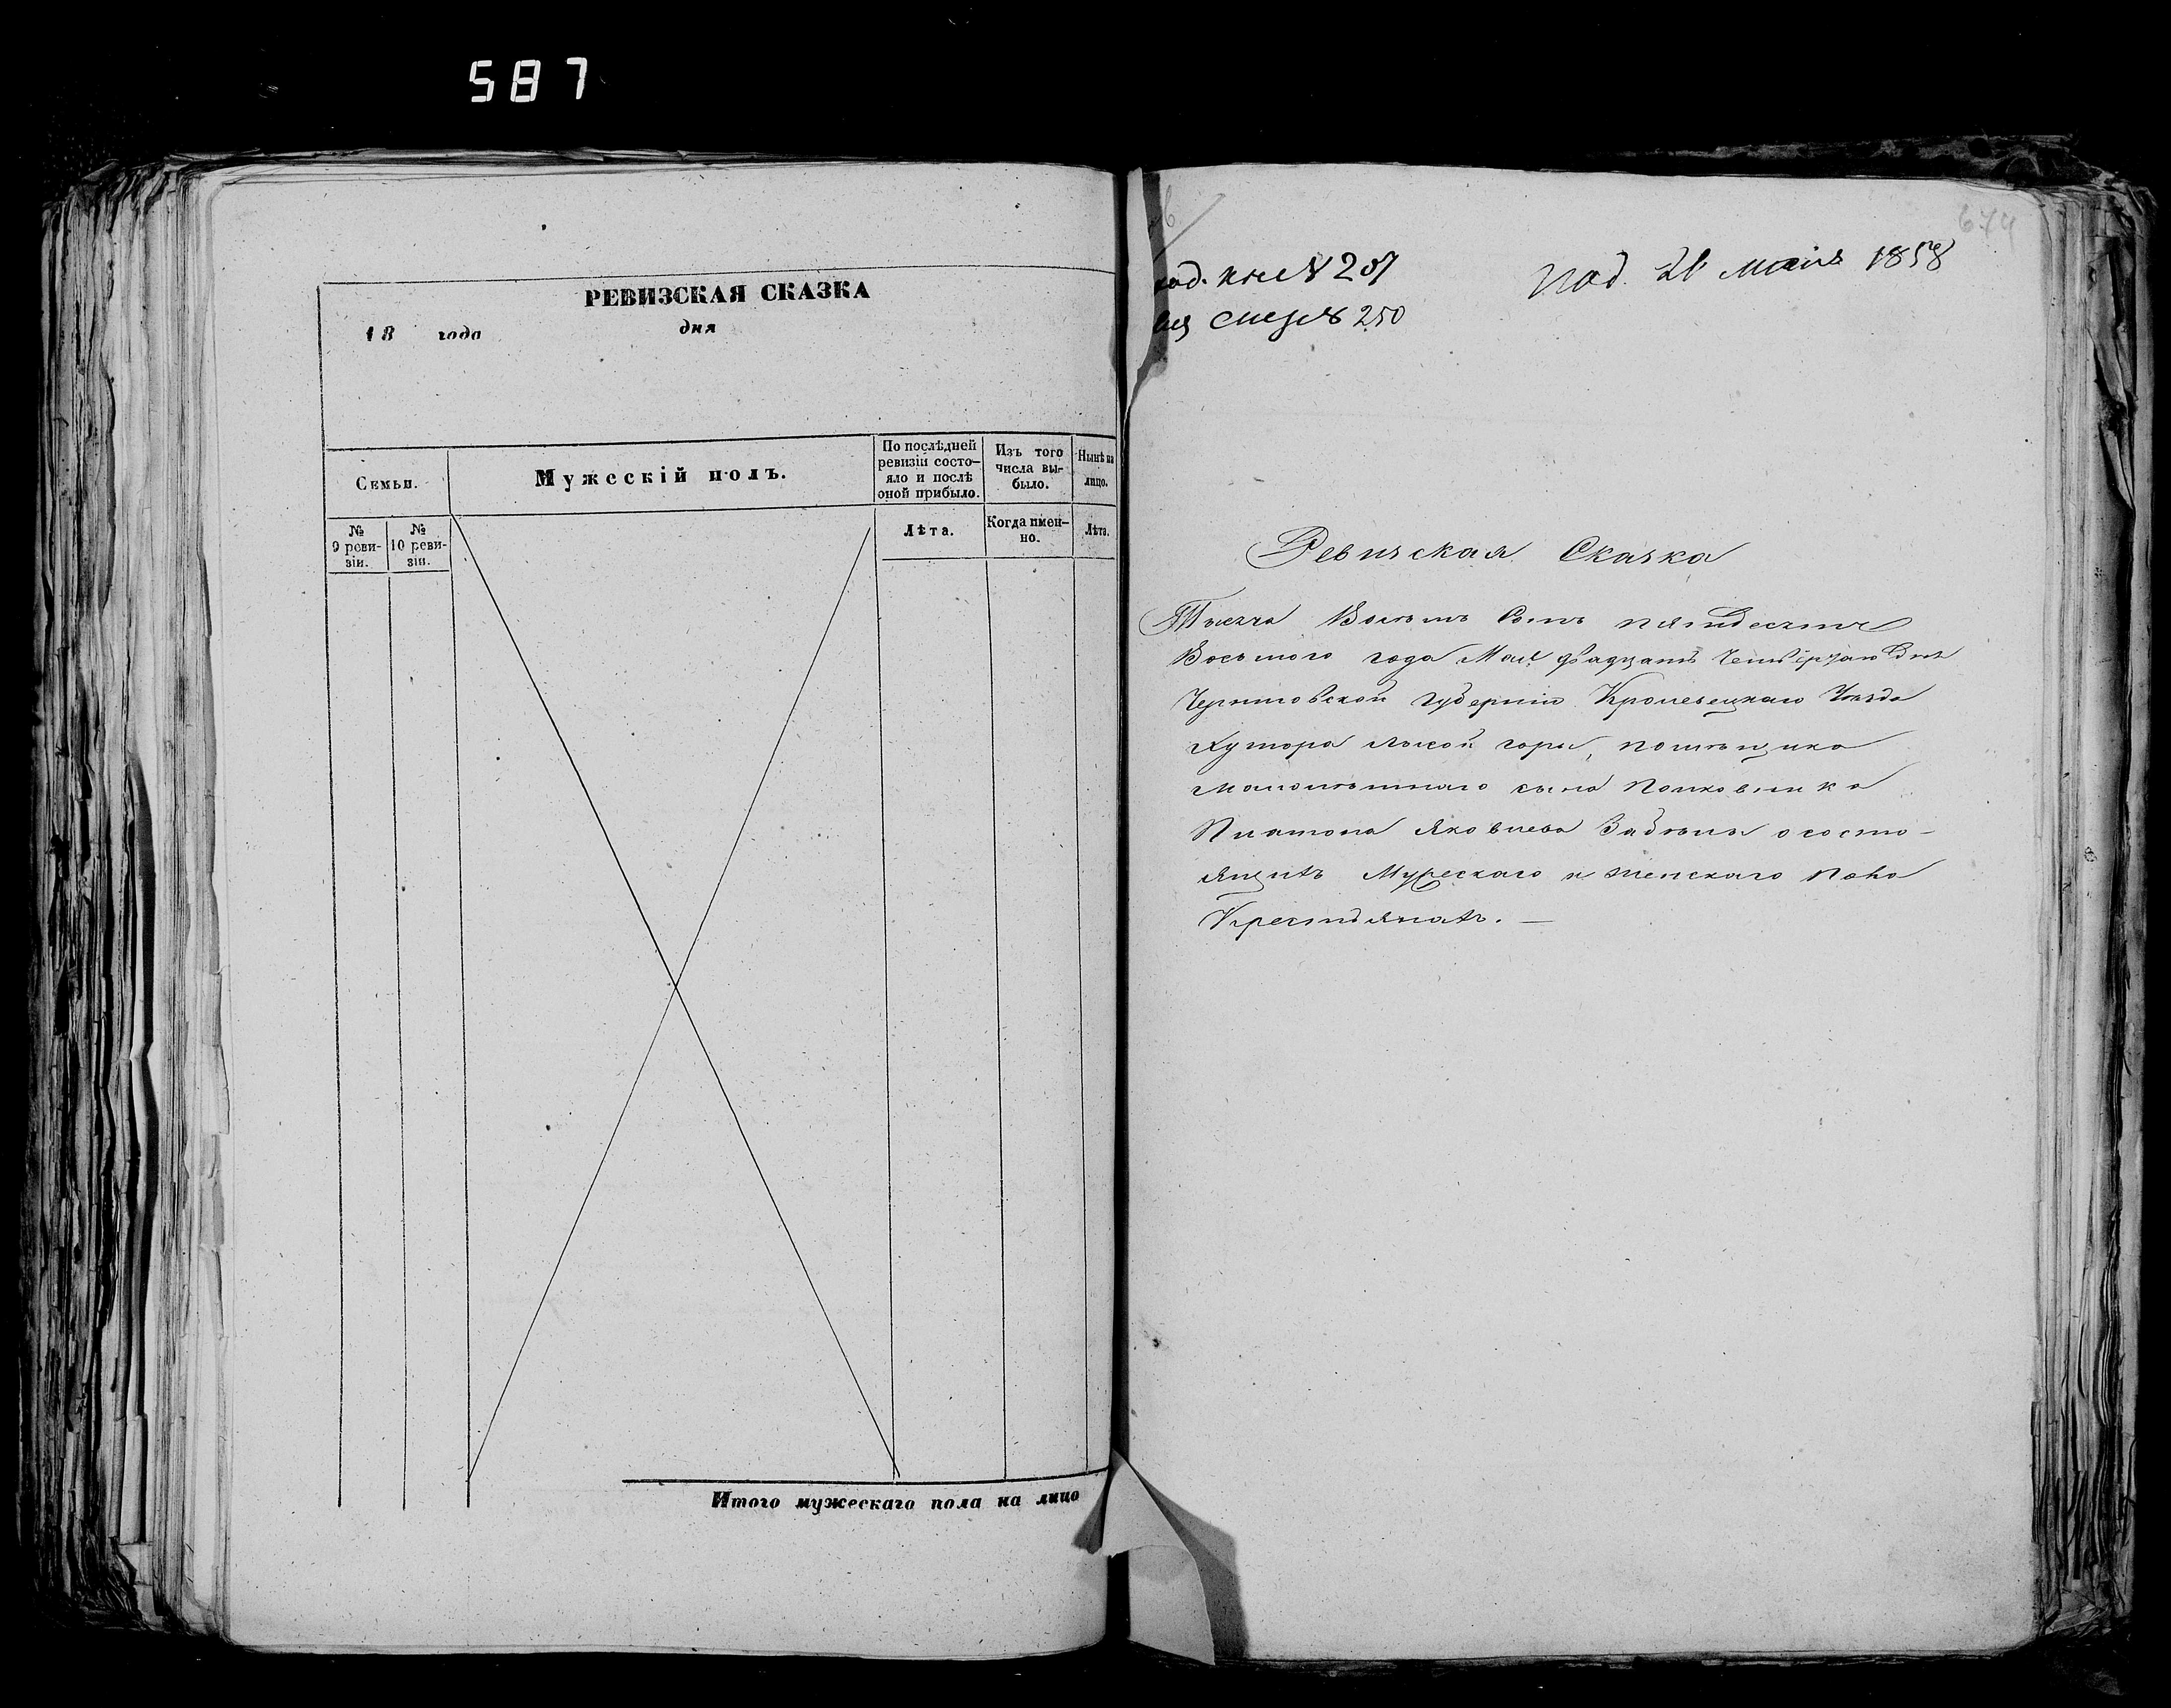 587
РЕВИЗСКАЯ СКАЗКА
18 года дня
Семьи.
Мужескій полъ.
По послѣдней ревизіи состо-
яло и послѣ
оной прибыло.
Изъ того
числа вы-
было.
Нынѣ на
лицо.
№
9 реви-
зіи.
№
10 реви-
зіи.
Лѣта.
Когда имен-
но.
Лѣта.
Итого мужескаго пола на лицо
674
207
250
Под. 21 маія 1858
Ревизская Сказка
Тысяча Восемь Сотъ пятдесятъ
Восьмого года Мая двадцать Четвертаго Дня
Черниговской Губерніи Кролевецкаго Уезда
Хутора лысой горы, помѣщика
малолѣтнаго сына Полковника
Платона Яковлева Забѣлы о состо-
ящихъ Мужескаго и женскаго Пола
Крестьянахъ. —